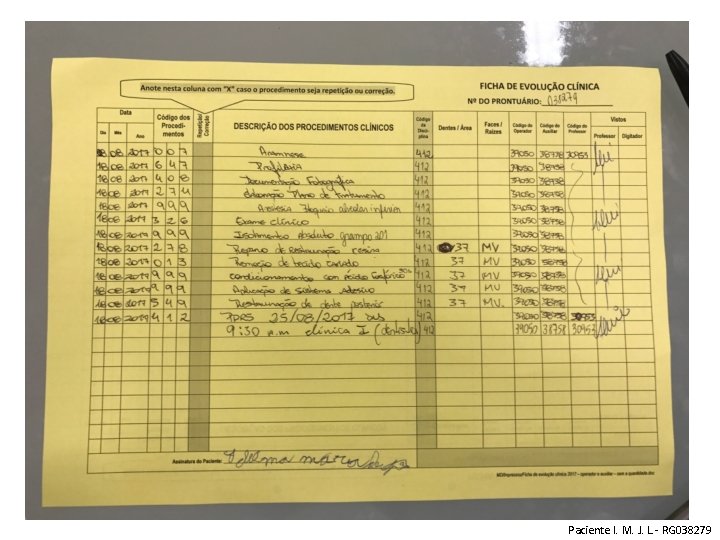 Anote nesta coluna com "X" caso o procedimento seja repetição ou correção.
FICHA DE EVOLUÇÃO CLÍNICA
Nº DO PRONTUÁRIO: 038279
Data
Dia Mês Ano
Código dos Procedimentos
Repetição/ Correção
DESCRIÇÃO DOS PROCEDIMENTOS CLÍNICOS
Código da Disciplina
Dentes / Área
Faces / Raízes
Código do Operador
Código do Auxiliar
Código do Professor
Vistos
Professor Digitador
18 08 2017 007 Anamnese 412 39050 38758 30953
18 08 2017 647 Profilaxia 412 39050 38758
18 08 2017 408 Documentação Fotográfica 412 39050 38758
18 08 2017 274 Elaboração Plano de Tratamento 412 39050 38758
18 08 2017 999 Anestesia Bloqueio alveolar inferior 412 39050 38758
18 08 2017 326 Exame clínico 412 39050 38758
18 08 2017 999 Isolamento Absoluto grampo 201 412 39050 38758
18 08 2017 278 Preparo de Restauração resina 412 37 MV 39050 38758
18 08 2017 013 Remoção de tecido cariado 412 37 MV 39050 38758
18 08 2017 999 condicionamento con ácido fosfórico 412 37 MV 39050 38758
18 08 2017 999 Aplicação de sistema adesivo 412 37 MV 39050 38758
18 08 2017 549 Restauração de dente posterior 412 37 MV 39050 38758
18 08 2017 412 25/08/2017 às 412 39050 38758 30953
9:30 p.m clínica I (dentística) 412 39050 38758 30953
Assinatura do Paciente:
Paciente I. M. J. L - RG038279